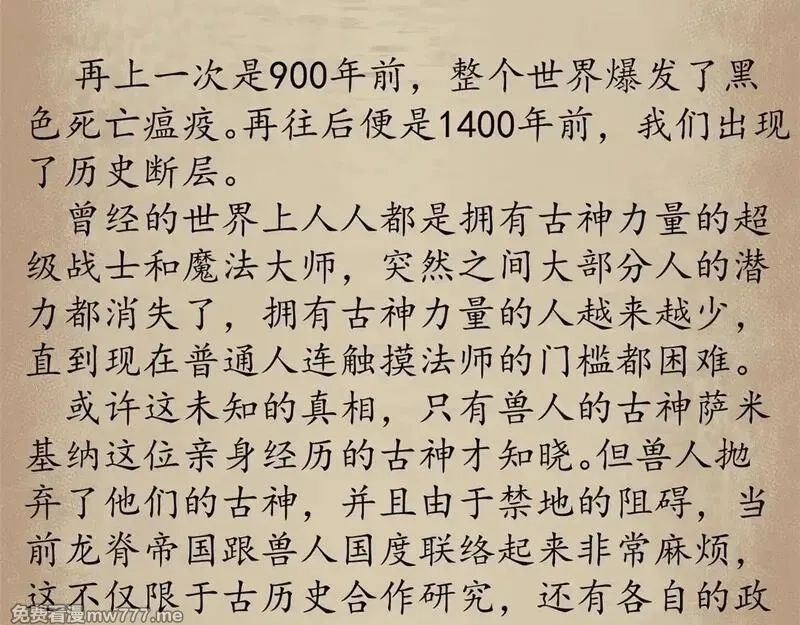 再上一次是900年前，整个世界爆发了黑
色死亡瘟疫。再往后便是1400年前，我们出现
了历史断层。
曾经的世界上人人都是拥有古神力量的超
级战士和魔法大师，突然之间大部分人的潜
力都消失了，拥有古神力量的人越来越少，
直到现在普通人连触摸法师的门槛都困难。
或许这未知的真相，只有兽人的古神萨米
基纳这位亲身经历的古神才知晓。但兽人抛
弃了他们的古神，并且由于禁地的阻碍，当
前龙脊帝国跟兽人国度联络起来非常麻烦，
这不仅限于古历史合作研究，还有各自的政
免费看漫mw777.me